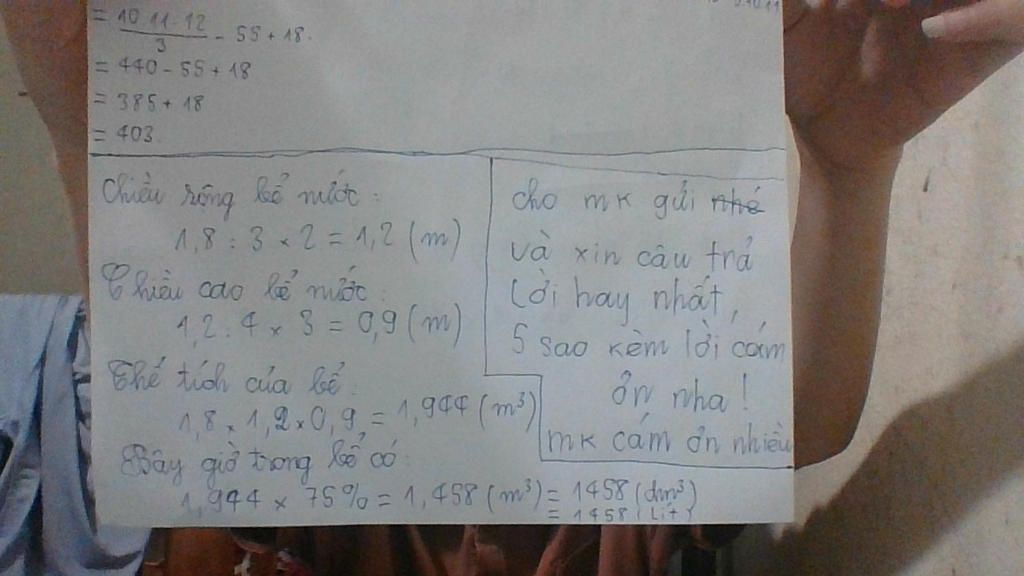 = 10.11.12 / 3 - 55 + 18.
= 440 - 55 + 18
= 385 + 18
= 403.
Chiều rộng bể nước:
1,8 : 3 × 2 = 1,2 (m)
Chiều cao bể nước:
1,2 : 4 × 3 = 0,9 (m)
Thể tích của bể:
1,8 × 1,2 × 0,9 = 1,944 (m³)
Bây giờ trong bể có:
1,944 × 75% = 1,458 (m³) = 1458 (dm³)
= 1458 (Lít)
cho mk gửi nhé
và xin câu trả
lời hay nhất,
5 sao kèm lời cám
ơn nha!
mk cám ơn nhiều